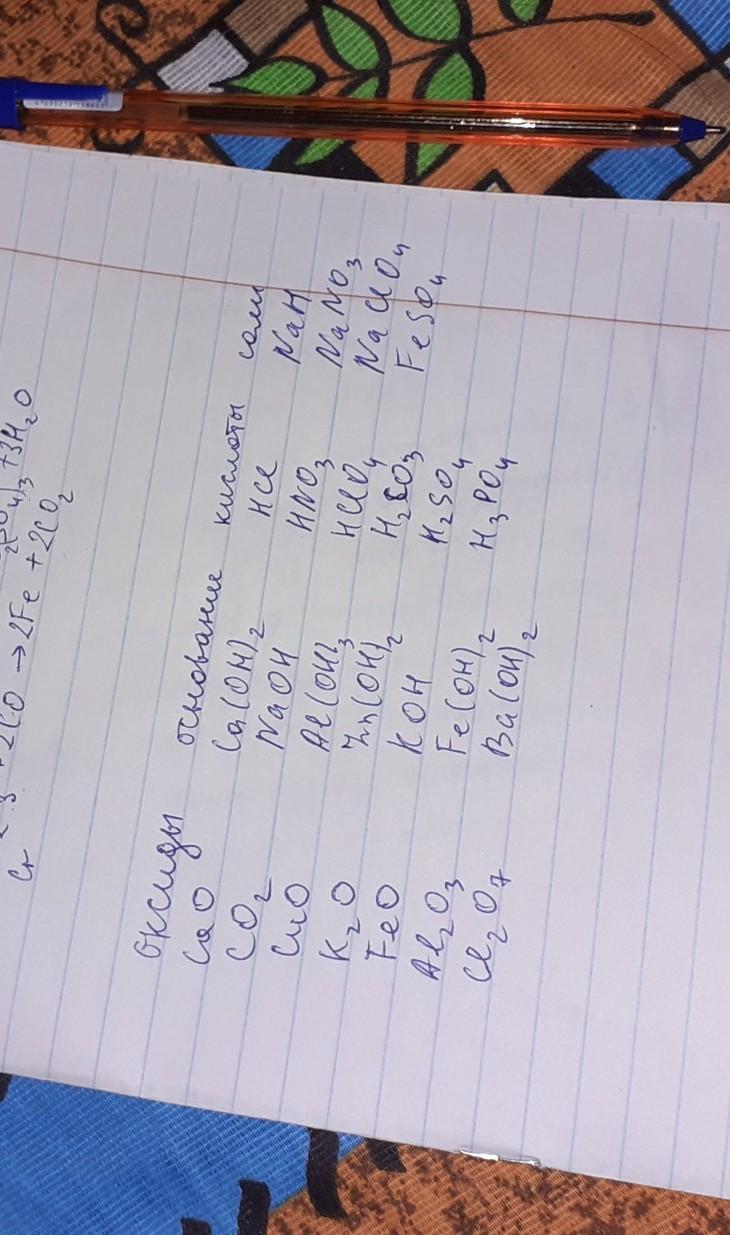 (SO4)3 +3H2O
+ 2CO → 2Fe + 2CO2
оксиды основание кислоты соли
CaO Ca(OH)2 HCl NaH
CO2 NaOH HNO3 NaNO3
CuO Al(OH)3 HClO4 NaClO4
K2O Zn(OH)2 H2SO3 FeSO4
FeO KOH H2SO4
Al2O3 Fe(OH)2 H3PO4
Cl2O7 Ba(OH)2